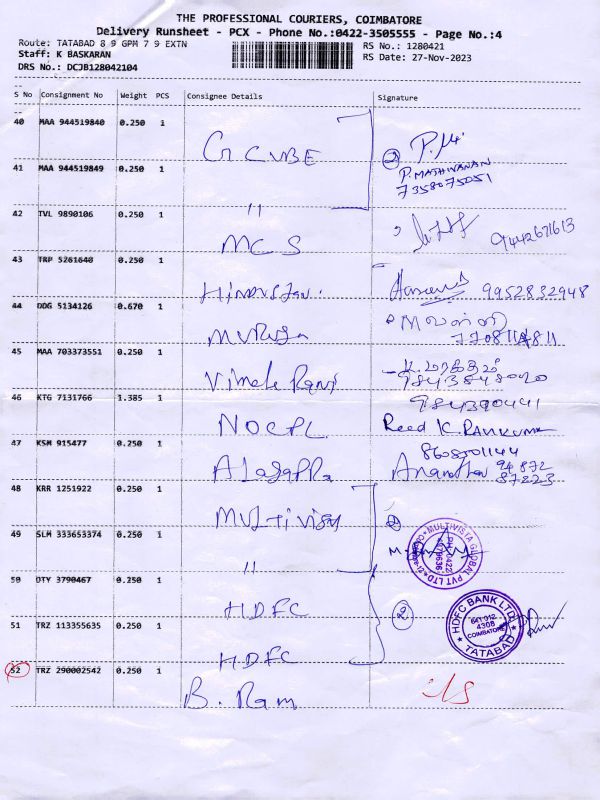 THE PROFESSIONAL COURIERS, COIMBATORE
Delivery Runsheet - PCX - Phone No.:0422-3505555 - Page No.:4
Route: TATABAD 8 9 GPM 7 9 EXTN
RS No.: 1280421
Staff: K BASKARAN
RS Date: 27-Nov-2023
DRS No.: DCJB128042104
S No Consignment No Weight PCS Consignee Details Signature
40 MAA 944519840 0.250 1
G CUBE
P. MATHIVANAN
7358075051
41 MAA 944519849 0.250 1
"
42 TVL 9890106 0.250 1
MCS
9442671613
43 TRP 5261640 0.250 1
Hindustan.
9952832948
44 DDG 5134126 0.670 1
45 MAA 703373551 0.250 1
Vimala Rani
46 KTG 7131766 1.385 1
NOCPL
Reed K. RAMKUMAR
47 KSM 915477 0.250 1
8608001144
Alagappa
Anandhan 94872
87223
48 KRR 1251922 0.250 1
Multivision
2
49 SLM 333653374 0.250 1
"
MULTIVISTA GLOBAL PVT LTD
50 OTY 3790467 0.250 1
HDFC
2
HDFC BANK LTD
COIMBATORE
TATABAD
51 TRZ 113355635 0.250 1
HDFC
52 TRZ 290002542 0.250 1
B. Ram